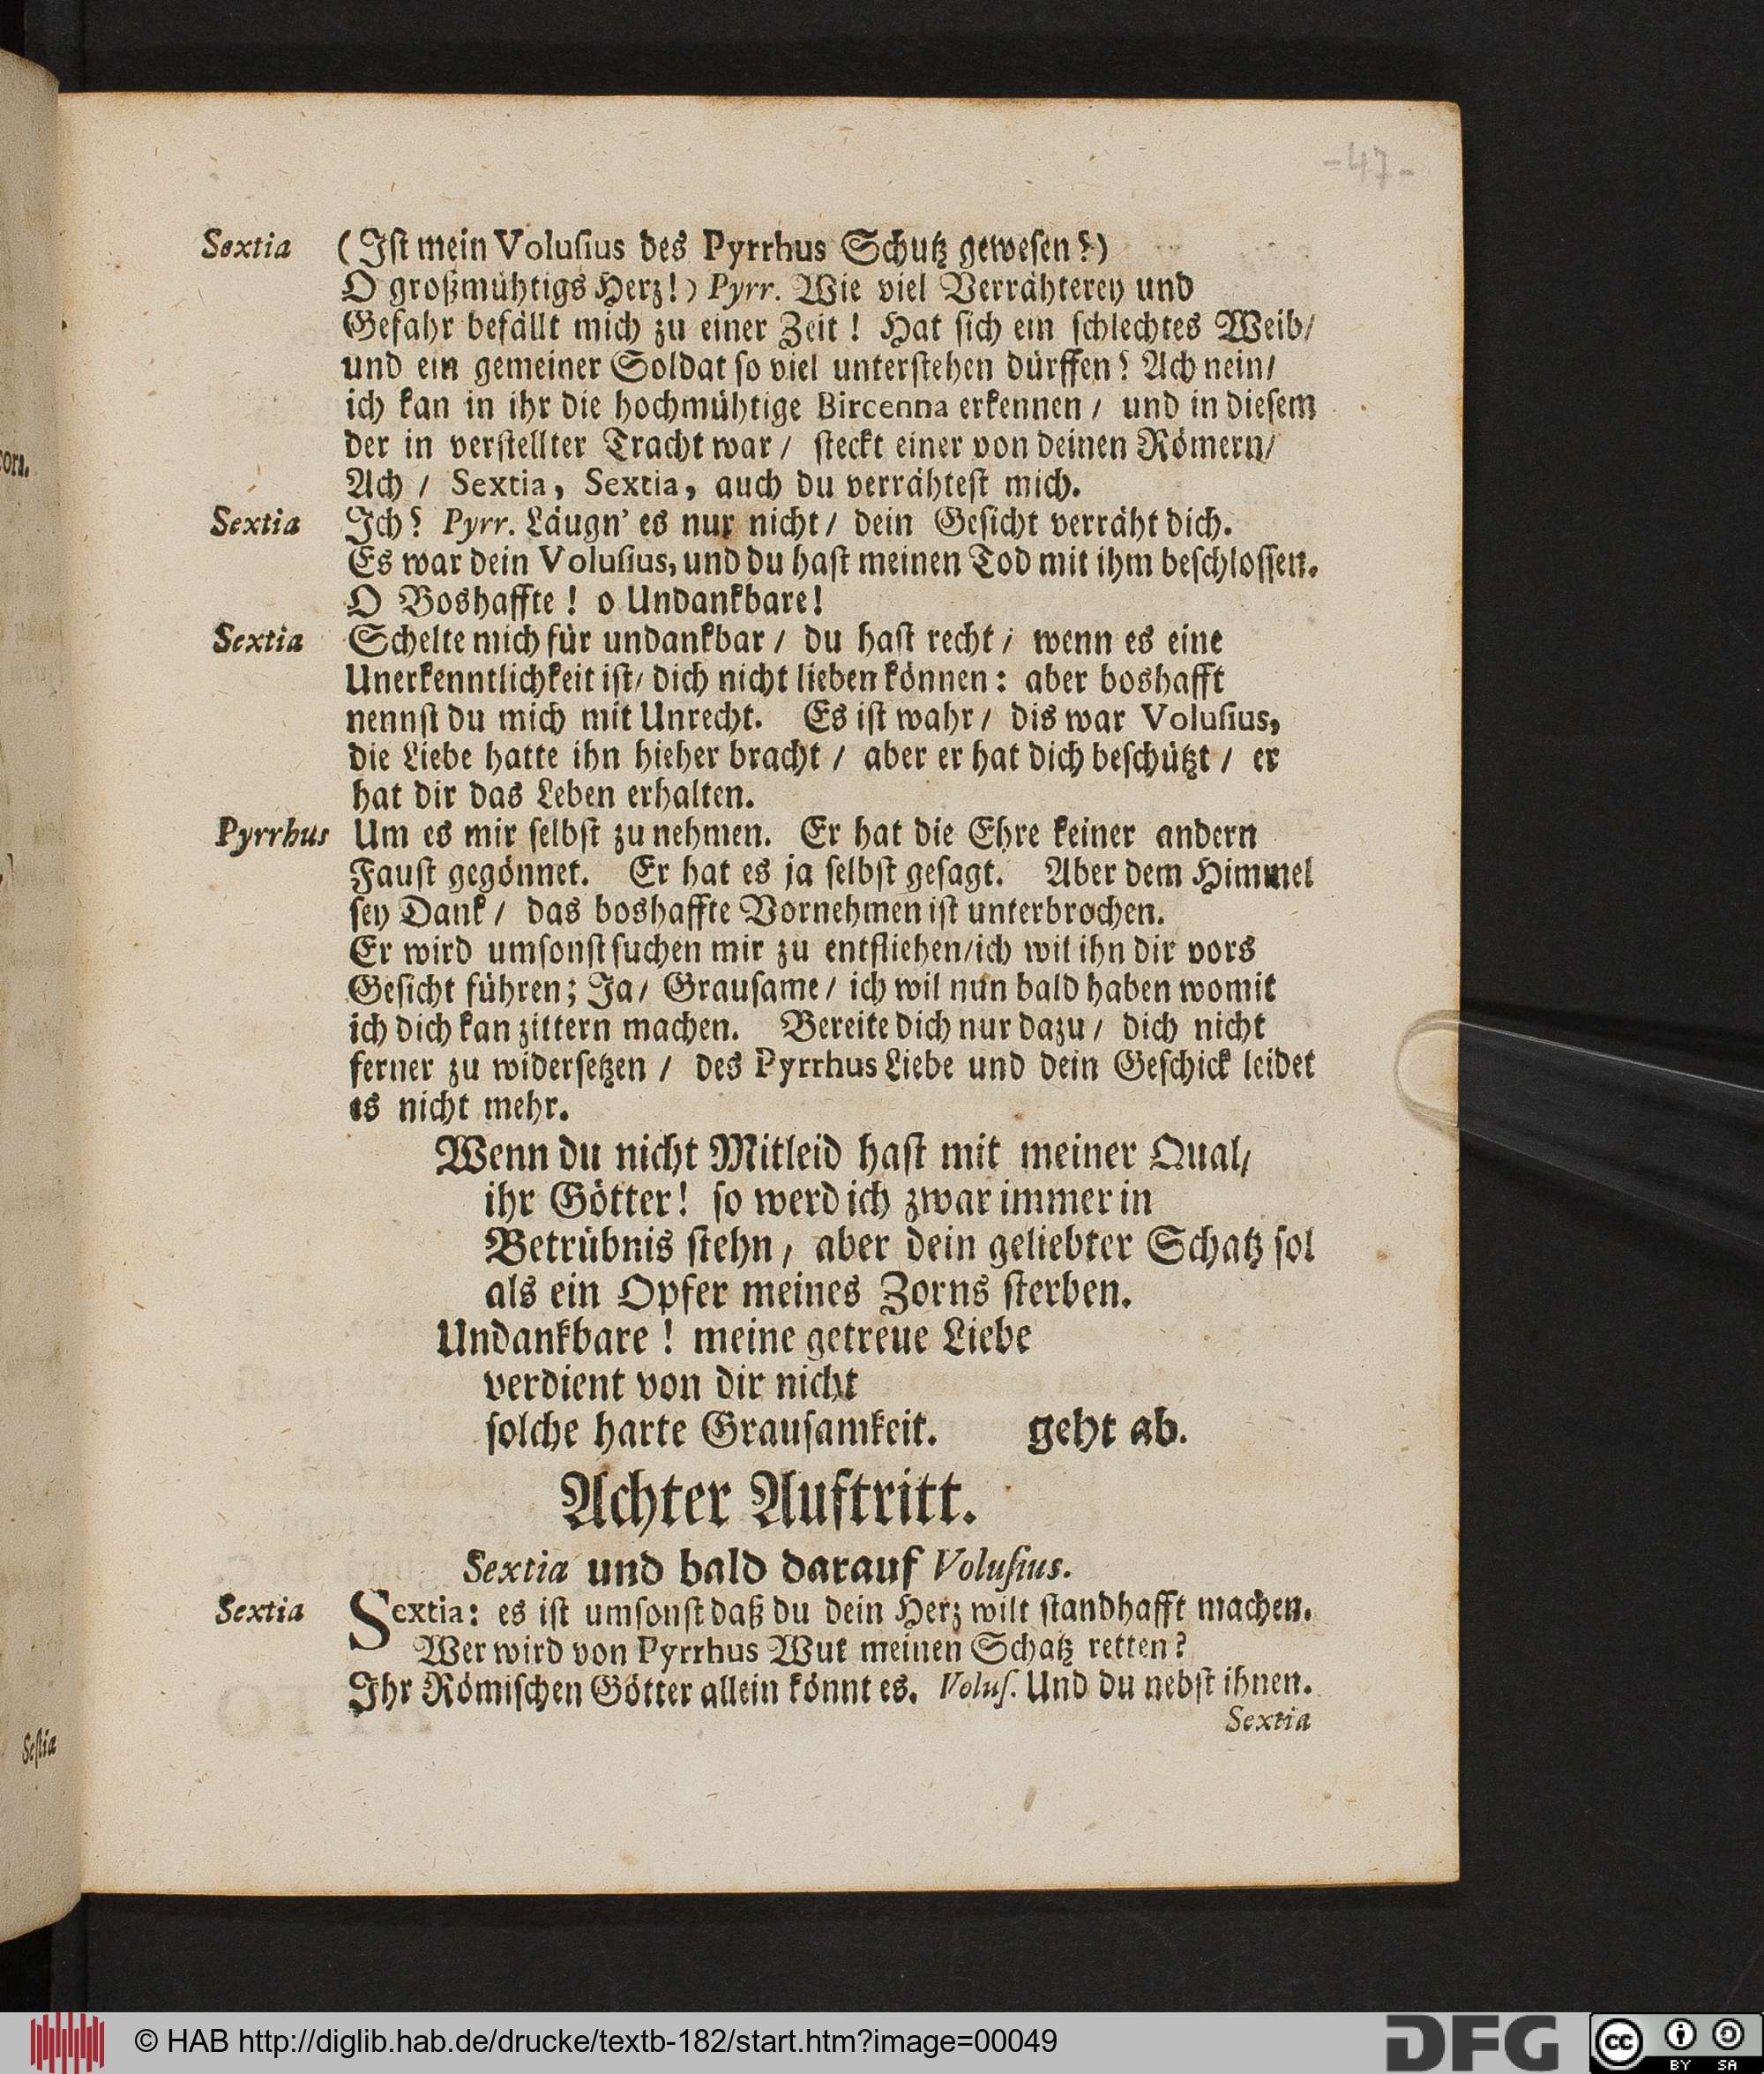 -47-
Sextia (Iſt mein Voluſius des Pyrrhus Schutz geweſen?)
O großmühtigs Herz!) Pyrr. Wie viel Verrähterey und
Gefahr befällt mich zu einer Zeit! Hat ſich ein ſchlechtes Weib/
und ein gemeiner Soldat ſo viel unterſtehen dürffen? Ach nein/
ich kan in ihr die hochmühtige Bircenna erkennen / und in dieſem
der in verſtellter Tracht war / ſteckt einer von deinen Römern/
Ach / Sextia, Sextia, auch du verrähteſt mich.
Sextia Ich? Pyrr. Läugn' es nur nicht / dein Geſicht verräht dich.
Es war dein Voluſius, und du haſt meinen Tod mit ihm beſchloſſen.
O Boshaffte! o Undankbare!
Sextia Schelte mich für undankbar / du haſt recht / wenn es eine
Unerkenntlichkeit iſt/ dich nicht lieben können: aber boshafft
nennſt du mich mit Unrecht. Es iſt wahr / dis war Voluſius,
die Liebe hatte ihn hieher bracht / aber er hat dich beſchützt / er
hat dir das Leben erhalten.
Pyrrhus Um es mir ſelbſt zu nehmen. Er hat die Ehre keiner andern
Fauſt gegönnet. Er hat es ja ſelbſt geſagt. Aber dem Himmel
ſey Dank / das boshaffte Vornehmen iſt unterbrochen.
Er wird umſonſt ſuchen mir zu entfliehen/ich wil ihn dir vors
Geſicht führen; Ja/ Grauſame / ich wil nun bald haben womit
ich dich kan zittern machen. Bereite dich nur dazu / dich nicht
ferner zu widerſetzen / des Pyrrhus Liebe und dein Geſchick leidet
es nicht mehr.
Wenn du nicht Mitleid haſt mit meiner Qual/
ihr Götter! ſo werd ich zwar immer in
Betrübnis ſtehn / aber dein geliebter Schatz ſol
als ein Opfer meines Zorns ſterben.
Undankbare! meine getreue Liebe
verdient von dir nicht
ſolche harte Grauſamkeit. geht ab.
Achter Auftritt.
Sextia und bald darauf Voluſius.
Sextia Sextia: es iſt umſonſt daß du dein Herz wilt ſtandhafft machen.
Wer wird von Pyrrhus Wut meinen Schatz retten?
Ihr Römiſchen Götter allein könnt es. Voluſ. Und du nebſt ihnen.
Sextia
ora.
Seſtia
© HAB http://diglib.hab.de/drucke/textb-182/start.htm?image=00049
DFG
cc
BY SA